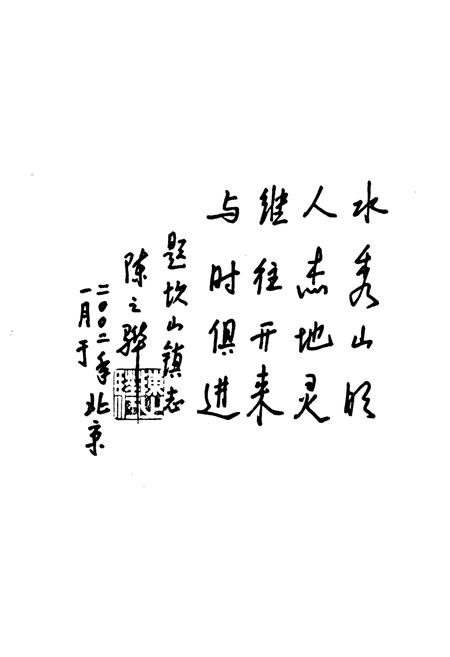 水秀山明
人杰地灵
继往开来
与时俱进
题坎山镇志
陈之骅
二〇〇二年
一月于
北京